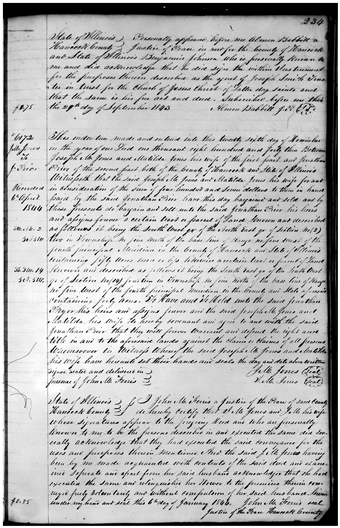 234
State of Illinois } Personally appeared before me Almon Babbitt a
Hancock County } Justice of Peace in and for the County of Hancock
and State of Illinois Benjamin Johnson who is personally known to
me and did acknowledge that he did sign the within Instrument
for the purposes therein described as the agent of Joseph Smith Trus
tee in trust for the Church of Jesus Christ of Latter day Saints and
that the same is his free act and deed. Subscribed before me this
the 29th day of September 1843 Almon Babbitt J.P.
This indenture made and entered into this twenth sixth day of November
in the year of our Lord one thousand eight hundred and forty two Between
Joseph M. Jones and Matilda Jones his wife of the first part and Jonathan
Prior of the second part both of the County of Hancock and State of Illinois
Witnesseth that the said Joseph M. Jones and Matilda Jones his wife for and
in consideration of the sum of four hundred and seven dollars to them in hand
paid by the said Jonathan Prior have this day bargained and sold and by
these presents do bargain and sell unto the said Jonathan Prior his heirs
and assigns forever a certain tract or parcel of land known and described
as follows it being the South west qr of the North east qr of Section No (2)
two in Township No four North of the base line of Range No five West of the
fourth principal meridian in the County of Hancock and State of Illinois
containing fifty acres
known and described as follows it being the South east qr of the South West
qr of Section No fourteen in Township No four North of the base line of Range
No five West of the fourth principal meridian in the County and State aforesaid
containing forty acres. To Have and To Hold unto the said Jonathan
Prior his heirs and assigns forever and the said Joseph M. Jones and
Matilda his wife do hereby covenant and agree to and with the said
Jonathan Prior that they will forever warrant and defend the right and
title in and to the aforesaid lands against the claim or claims of all persons
Whomsoever. In Witness Whereof the said Joseph M. Jones and Matilda
his wife have hereunto set their hands and seals the day and date above written
Signed Sealed and delivered in } J. M. Jones Seal
presence of John M. Ferris } M. Jones Seal
State of Illinois } I John M. Ferris a Justice of the Peace of said County
Hancock County } do hereby certify that J. M. Jones and his wife
whose signatures appears to the foregoing deed and who are personally
known to me to be the persons described in and executed the same did seve
rally acknowledge that they had executed the said conveyance for the
uses and purposes therein mentioned. And the said M. Jones having
been by me made acquainted with contents of the said deed and exami
ned separate and apart from her said husband acknowledged that she had
executed the same and relinquishes her dower to the premises therein con
veyed freely voluntarily and without compulsion of her said husband. Given
under my hand and seal this 6th day of January 1844. John M. Ferris Seal
Justice of the Peace Hancock County
No 6172
Recorded
6th April
1844